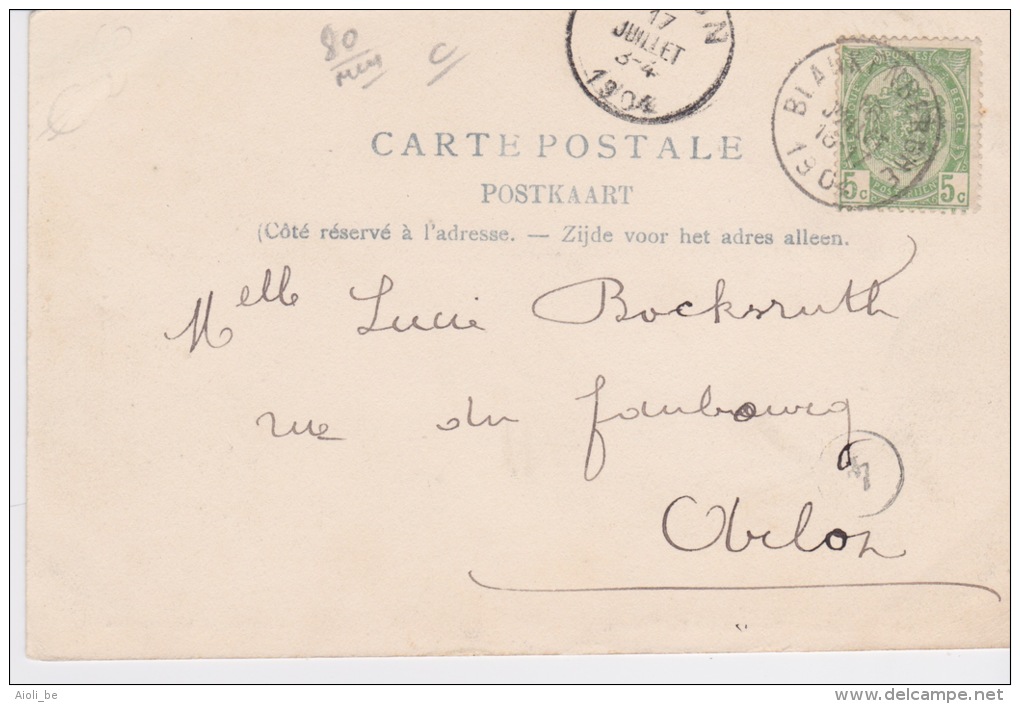 80
17
JUILLET
3-4
1904
BLANKENBERGHE
1904
5c 5c
CARTE POSTALE
POSTKAART
(Côté réservé à l'adresse. — Zijde voor het adres alleen.
Melle Lucie Bocksruth
rue du faubourg
Arlon
Aioli_be
www.delcampe.net